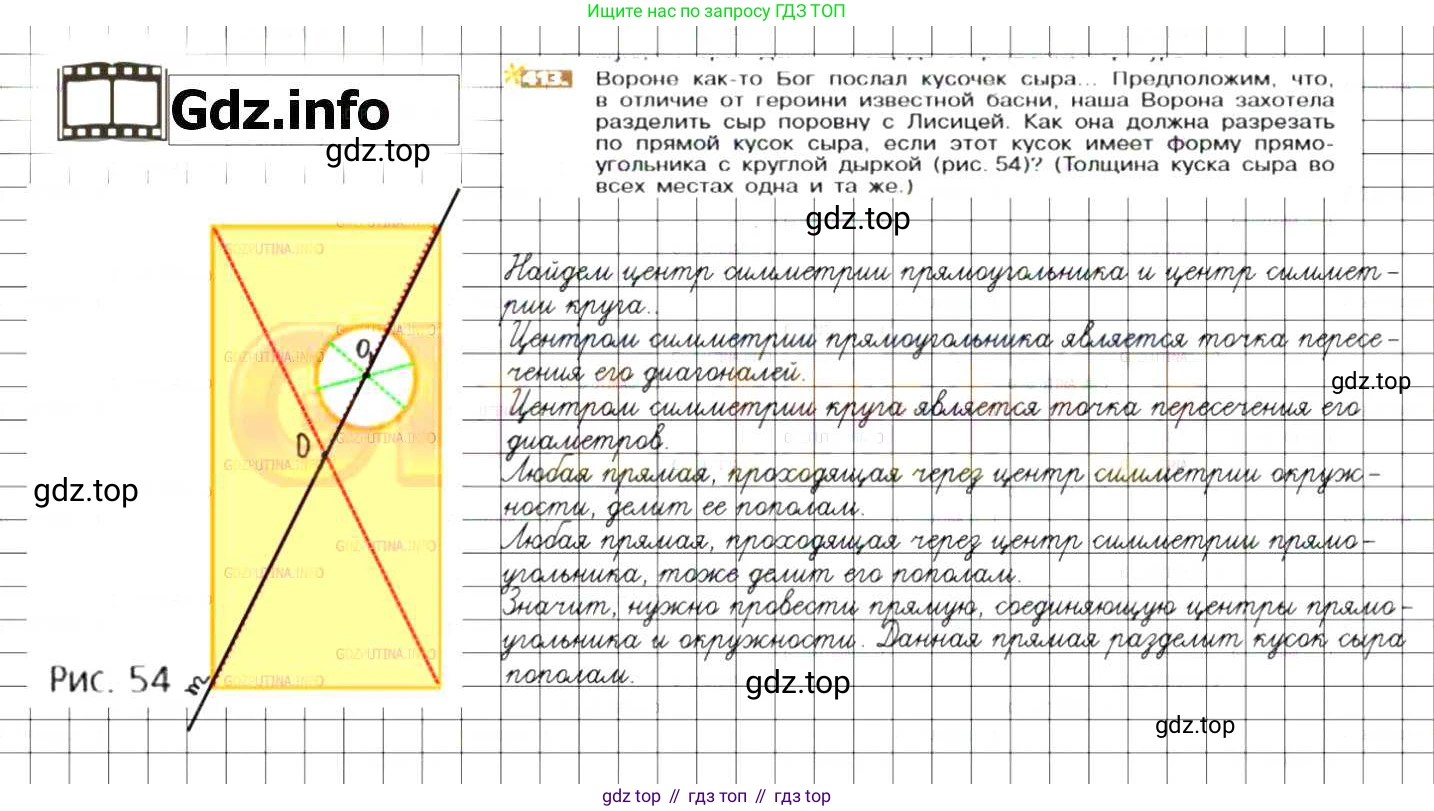 Ищите нас по запросу ГДЗ ТОП
Gdz.info
gdz.top
413.
Вороне как-то Бог послал кусочек сыра... Предположим, что,
в отличие от героини известной басни, наша Ворона захотела
разделить сыр поровну с Лисицей. Как она должна разрезать
по прямой кусок сыра, если этот кусок имеет форму прямо-
угольника с круглой дыркой (рис. 54)? (Толщина куска сыра во
всех местах одна и та же.)
gdz.top
Найдем центр симметрии прямоугольника и центр симмет-
рии круга..
Центром симметрии прямоугольника является точка пересе-
чения его диагоналей.
gdz.top
Центром симметрии круга является точка пересечения его
диаметров.
Любая прямая, проходящая через центр симметрии окруж-
ности, делит ее пополам.
Любая прямая, проходящая через центр симметрии прямо-
угольника, тоже делит его пополам.
Значит, нужно провести прямую, соединяющую центры прямо-
угольника и окружности. Данная прямая разделит кусок сыра
пополам.
gdz.top
gdz.top
gdz.top
O₁
O
m
Рис. 54
GDZPUTINA.INFO
GDZPUTINA.INFO
GDZPUTINA.INFO
GDZPUTINA.INFO
GDZPUTINA.INFO
GDZPUTINA.INFO
GDZPUTINA.INFO
GDZPUTINA.INFO
GDZPUTINA.INFO
gdz top // гдз топ // гдз top